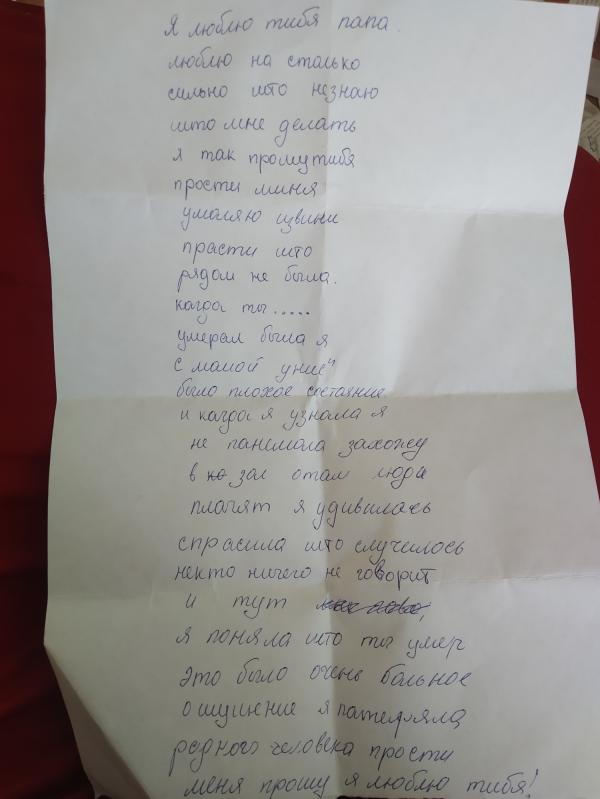 Я люблю тибя папа.
люблю на столько
сильно што незнаю
што мне делать
я так прошу тибя
прости миня
умоляю извини
прасти што
рядом не была.
когда ты.....
умерал была я
с мамой у ние
было плохое состаяние
и кагда я узнала я
не панемала захожу
в зал отам люди
плачят я удивилась
спрасила што случилось
некто ничего не говорит
и тут
я поняла што ты умер
это было очень больное
ощущиние я патеряла
родного человека прости
меня прошу я люблю тибя!